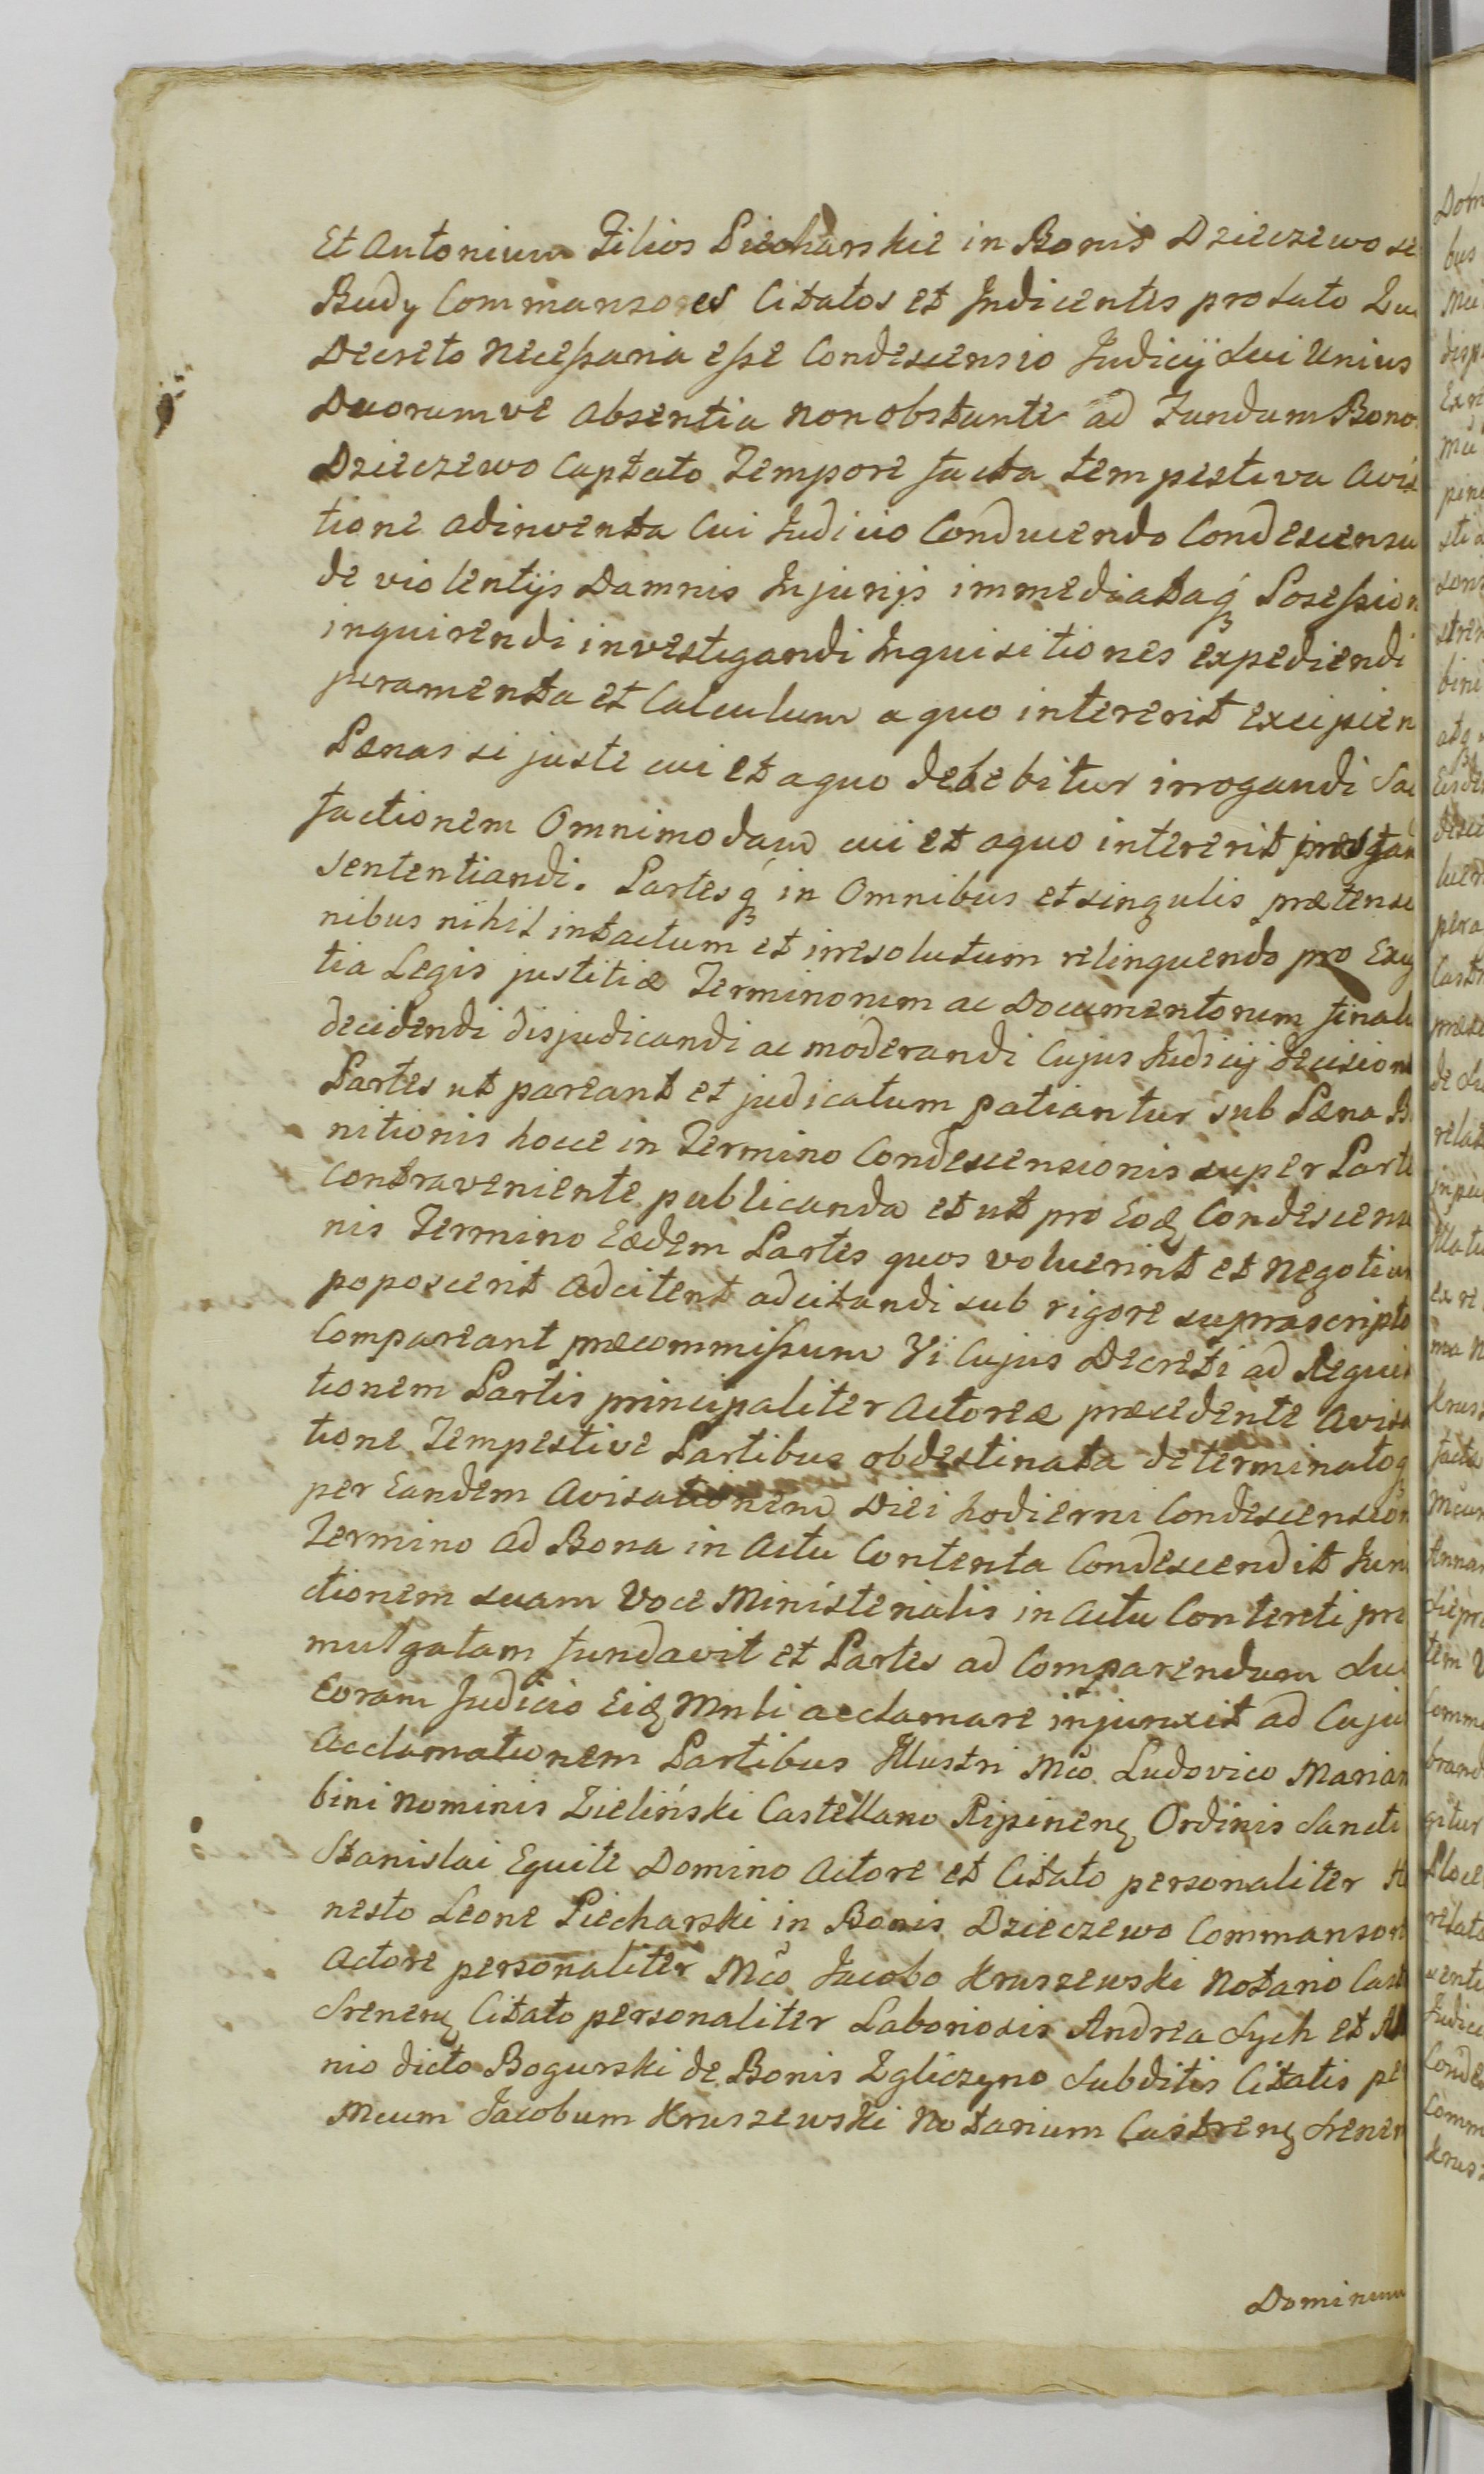 Et Antonium Filios Piecharskie in Bonis Dzieczewo se
Budy Commansores Citatos et Indicentes pro lato
Decreto Necessaria esse Condescensio Judicij sui Unius
Duorumve absentia non obstante ad Fundum Bono
Dzieczewo Captato Tempore facta tempestiva Avisa
tione adinventa Cui Judicio Conducendo Condescensu
de violentijs Damnis Injurijs immediataq Possession
inquirendi investigandi Inquisitiones expediendi
juramenta et Calculum a quo intererit excipien
Pænas si juste cui et a quo debebitur irrogandi Sa
factionem Omnimodam cui et a quo intererit præstan
sententiandi. Partesq in Omnibus et singulis prætensi
nibus nihil intactum et irresolutum relinquendo pro Exig
tia Legis justitiæ Terminorum ac Documentorum final
decidendi disjudicandi ac moderandi Cujus Judicij decision
Partes ut pareant et judicatum patiantur sub Pæna B
nitionis hocce in Termino Condescensionis super Part
Contraveniente publicanda et ut pro Eoq Condescensi
nis Termino Eædem Partes quos voluerint et Negotium
poposcerit adcitent adcitandi sub rigore suprascripto
Compareant præcommissum Vi Cujus Decreti ad Requi
tionem Partis principaliter Actoreæ præcedente Avisa
tione Tempestive Partibus obdestinata determinatoq
per Eandem Avisationem Diei hodierni Condescension
Termino ad Bona in Actu Contenta Condescendit Juri
ctionem suam Voce Ministerialis in Actu Contenti pro
mulgatam fundavit et Partes ad Comparendum Sui
Coram Judicio Eiq Mnli acclamare injunxit ad Cuju
Acclamationem Partibus Illustri Mco Ludovico Marian
bini Nominis Zieliński Castellano Ripinenq Ordinis Sancti
Stanislai Equite Domino Actore et Citato personaliter H
nesto Leone Piecharski in Bonis Dzieczewo Commanson
Actore personaliter Mco Jacobo Kruszewski Notario Cast
Srenenq Citato personaliter Laboriosis Andrea Sych et
nio dicto Bogurski de Bonis Zgliczyno Subditis Citatis pe
Mcum Jacobum Kruszewski Notarium Castrenq Srenen
Dominum